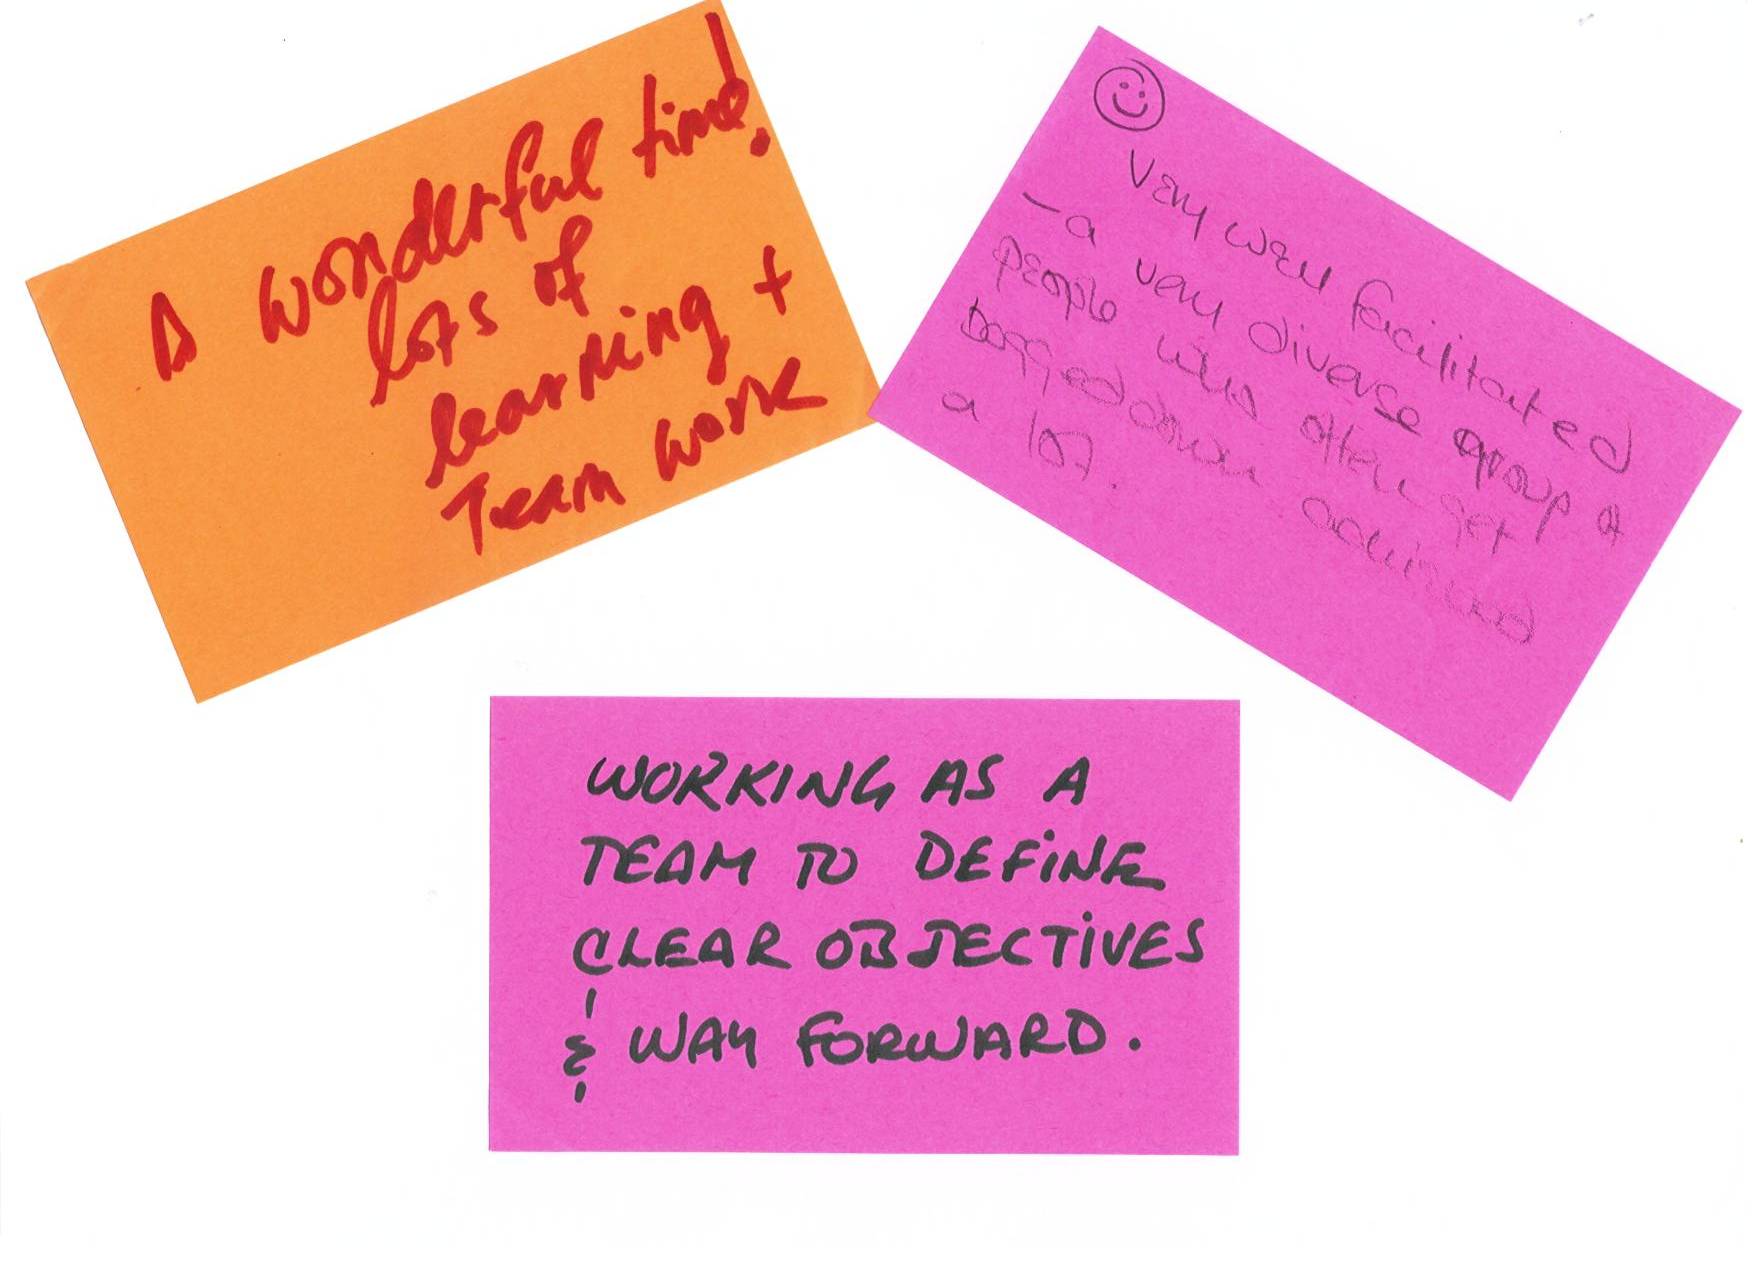 A wonderful time!
lots of
learning +
Team work
Very well facilitated
- a very diverse group of
people who often get
bogged down achieved
a lot.
WORKING AS A
TEAM TO DEFINE
CLEAR OBJECTIVES
& WAY FORWARD.